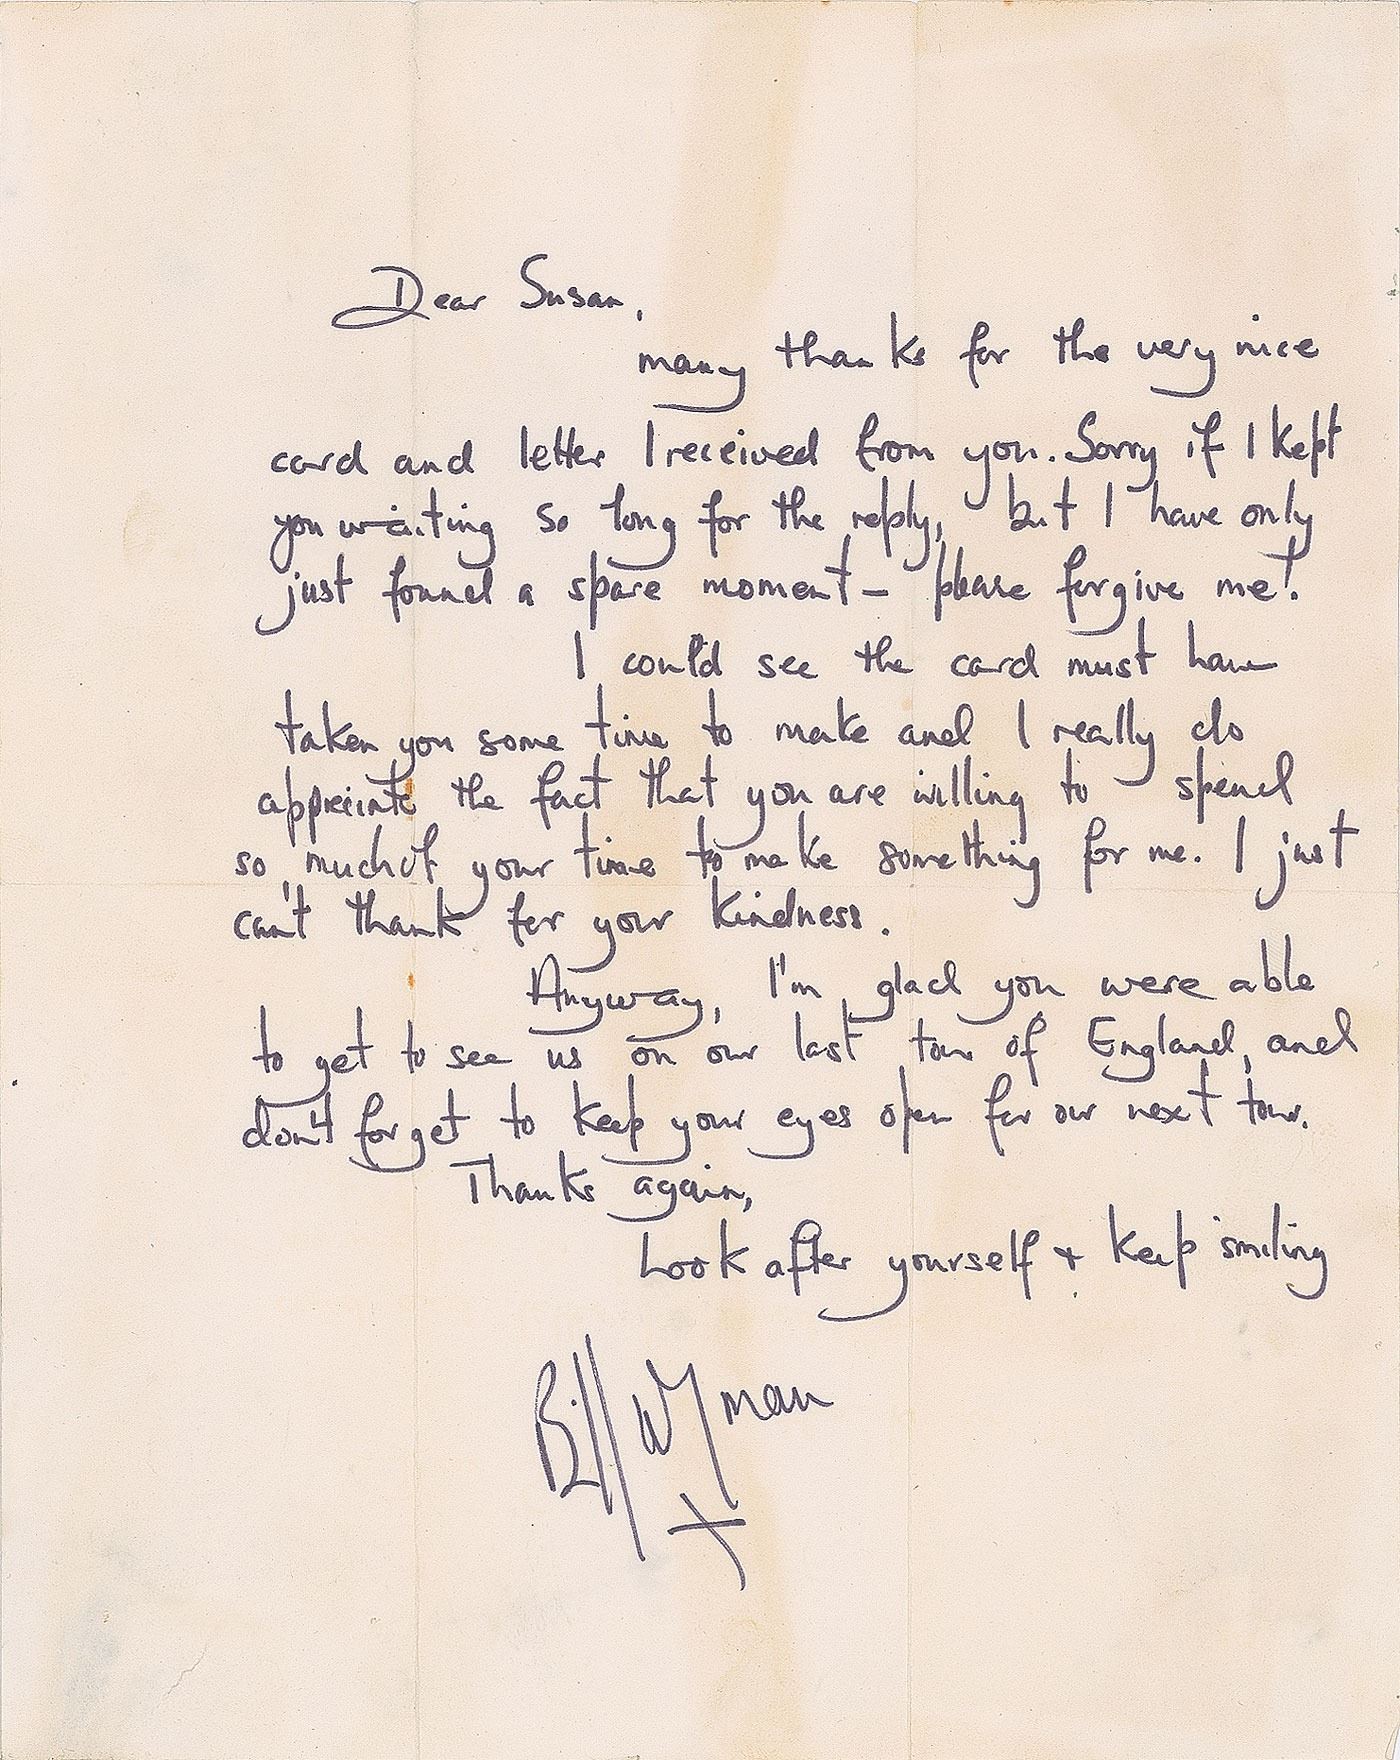 Dear Susan,
many thanks for the very nice
card and letter I received from you. Sorry if I kept
you waiting so long for the reply, but I have only
just found a spare moment - please forgive me!
I could see the card must have
taken you some time to make and I really do
appreciate the fact that you are willing to spend
so much of your time to make something for me. I just
can't thank for your kindness.
Anyway, I'm glad you were able
to get to see us on our last tour of England, and
don't forget to keep your eyes open for our next tour.
Thanks again,
Look after yourself + keep smiling
Bill Wyman
X